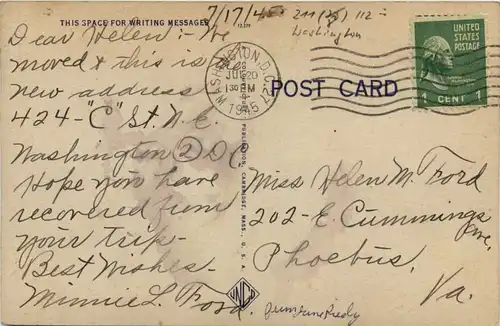 THIS SPACE FOR WRITING MESSAGES
7/17/45
Washington
Dear Helen:- We
moved & this is
new address
424-"C" St. N.E.
Washington 2 D.C.
Hope you have
recovered from
your trip-
Best Wishes-
Minnie L. Ford.
WASHINGTON, D.C.
JUL 20
PM
1945
POST CARD
UNITED STATES
POSTAGE
1 CENT 1
Miss Helen M. Ford
202-E. Cummings
Ave.
Phoebus,
Va.
PUBLICATION, CAMBRIDGE, MASS., U.S.A.